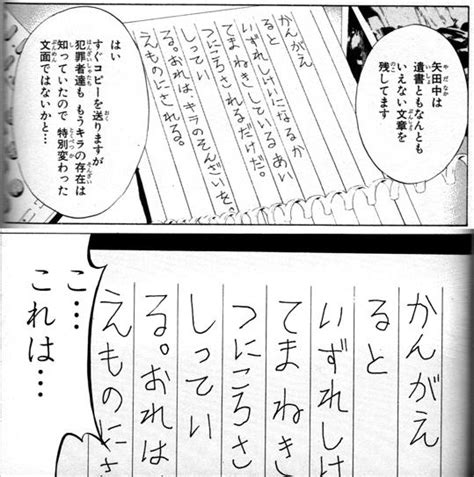 矢田中は
遺書ともなんとも
いえない文章を
残してます
かんがえ
ると
いずれしけいになるか
てまねきしているあい
つにころされるだけだ。
しってい
る。おれは、キラのそんざいを。
えものにされる。
はい
すぐコピーを送りますが
犯罪者達も もうキラの存在は
知っていたので 特別変わった
文面ではないかと…
かんがえ
ると
いずれしけ
てまねき
つにころさ
しってい
る。おれは
えものにさ
こ…
これは…